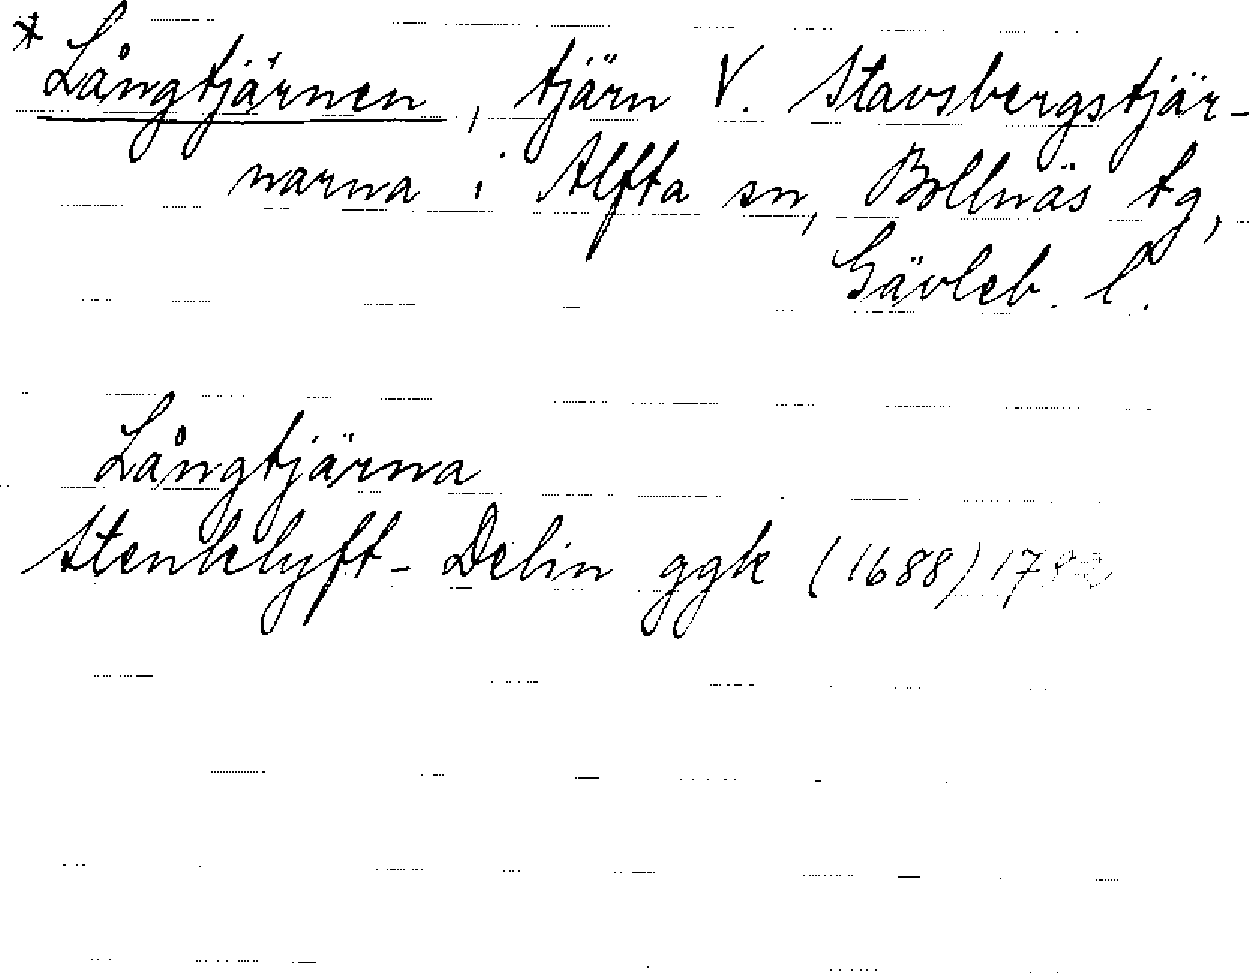 * Långtjärnen, tjärn V. Stavsbergstjär-
narna i Alfta sn, Bollnäs tg,
Gävleb. l.
Långtjärna
Stenklyft-Delin ggk (1688)